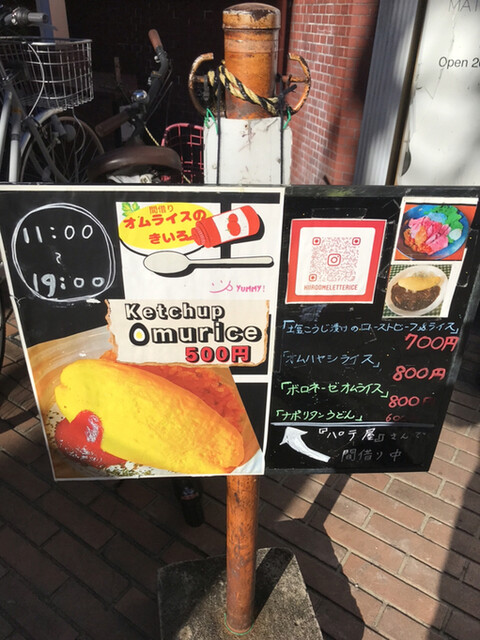 MAT
Open 20
11:00
~
19:00
間借り
オムライスの
きいろ
YUMMY!
Ketchup
Omurice
500円
「塩こうじ漬けのローストビーフ&ライス」
700円
「オムハヤシライス」
800円
「ボロネーゼオムライス」
800円
「ナポリタンうどん」
60
さんで
間借り中